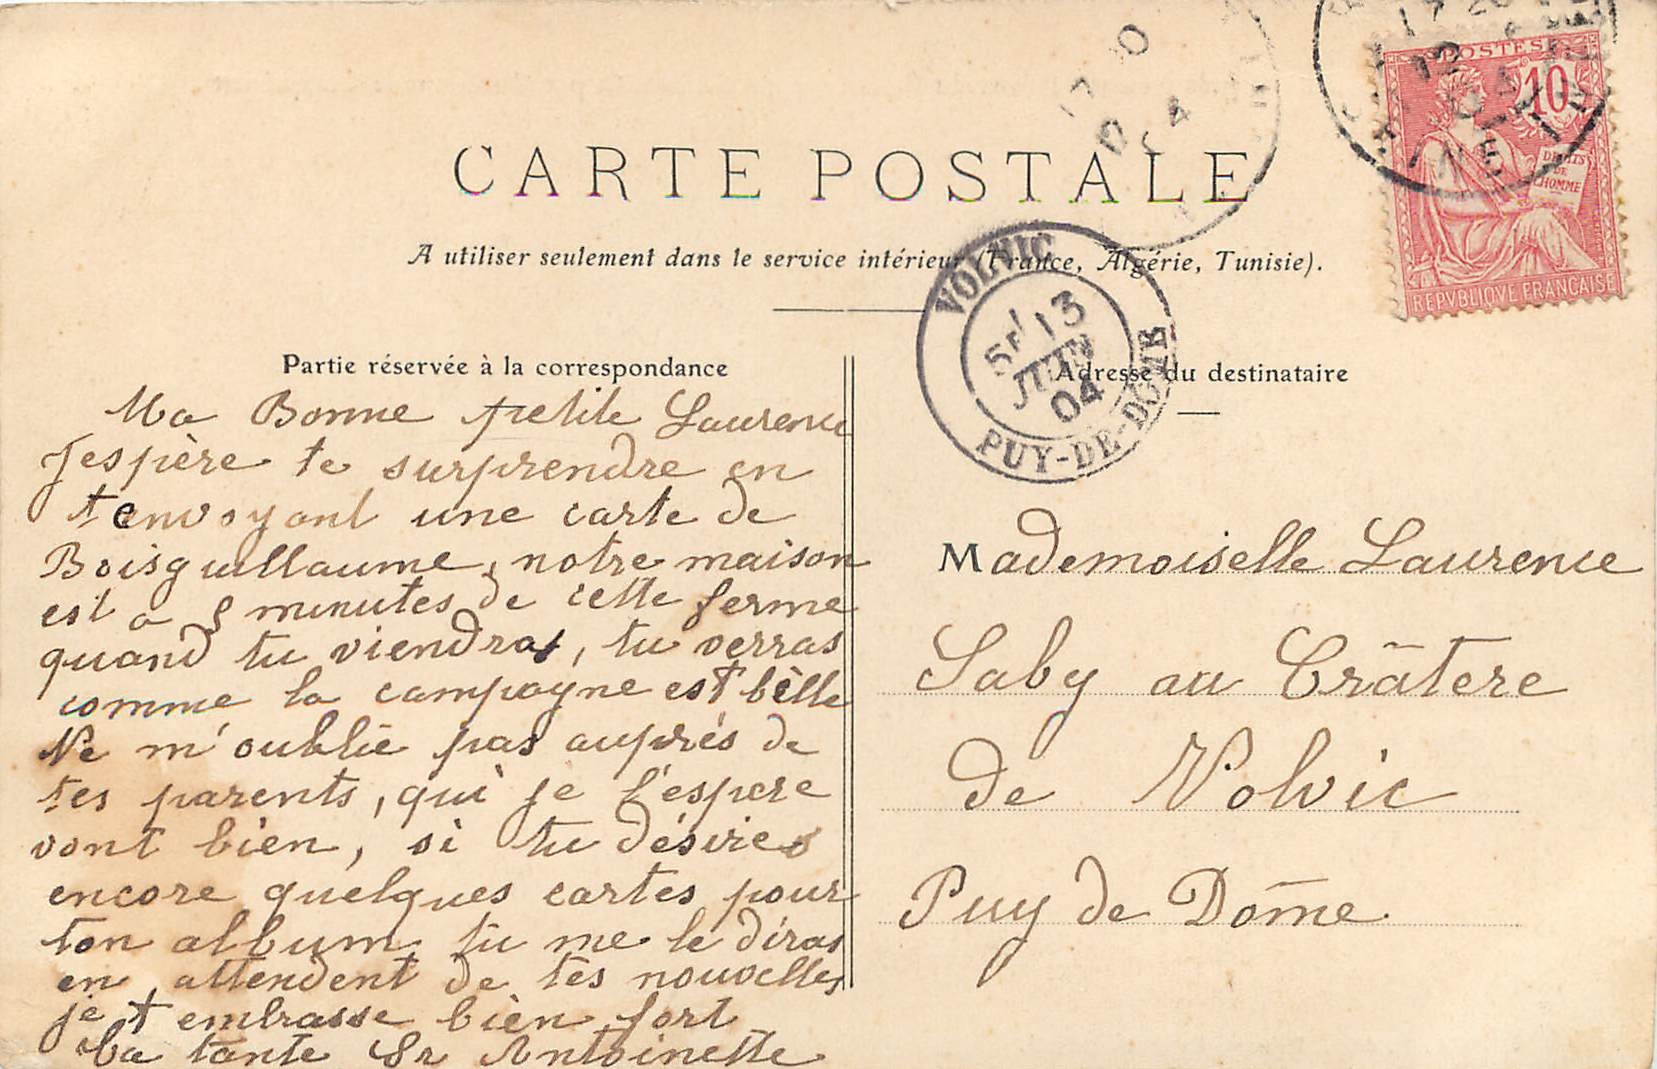 CARTE POSTALE
A utiliser seulement dans le service intérieur (France, Algérie, Tunisie).
POSTES
10
DROITS
DE
L'HOMME
REPVBLIQVE FRANÇAISE
VOLVIC
13
JUIN
04
PUY-DE-DOME
Partie réservée à la correspondance
Ma Bonne petite Laurence
J'espère te surprendre en
t envoyant une carte de
Boisguillaume, notre maison
est a 5 minutes de cette ferme
quand tu viendras, tu verras
comme la campagne est bèlle
Ne m'oublie pas auprés de
tes parents, qui je l'espere
vont bien, si tu désires
encore quelques cartes pour
ton album tu me le diras
en attendent de tes nouvelles
je t embrasse bien fort
ta tante Sr Antoinette
Adresse du destinataire
Mademoiselle Laurence
Saby au Crâtere
de Volvic
Puy de Dôme